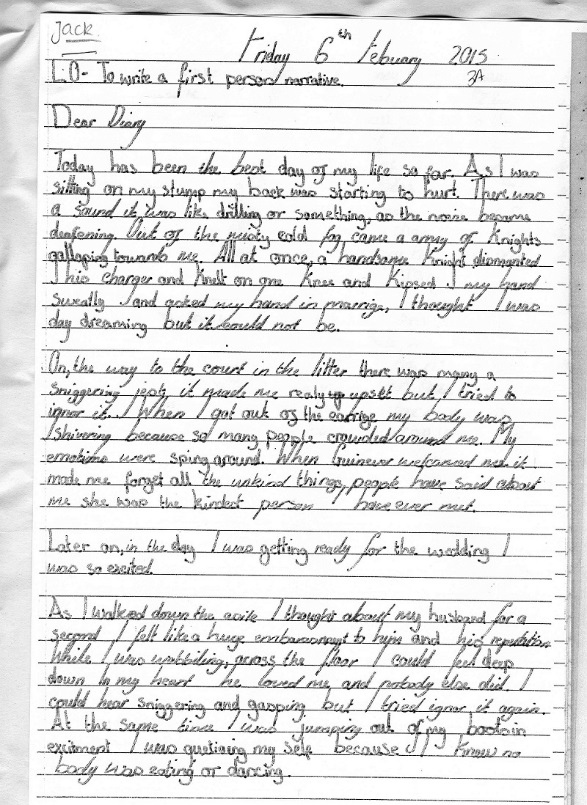 Jack
Friday 6th Febuary 2015
L.O- To write a first person narrative.
3A
Dear Diary
Today has been the best day of my life so far. As I was
sitting on my stump my back was starting to hurt. There was
a sound it was like drilling or something, as the noise became
deafening. Out of the misty cold fog came a army of Knights
galloping towards me. All at once, a handsome Knight dismounted
his charger and knelt on one knee and kipsed my hand
sweatly and asked my hand in marrige, I thought I was
day dreaming but it could not be.
On, the way to the court in the litter there was many a
sniggering jest, it made me realy upset but I tried to
ignor it. When I got out of the carrige my body was
shivering because so many people crowded around me. My
emotions were sping around. When Guinever welcomed me it
made me forget all the unkind things, people have said about
me she was the kindest person I have ever met.
Later on, in the day I was getting ready for the wedding I
was so excited.
As I walked down the aile I thought about my husband for a
second I felt like a huge embarassment to him and his reputation
While I was wobbiling, across the floor I could feel deep
down in my heart he loved me and nobody else did I
could hear sniggering and gasping but I tried ignor it again.
At the same time I was jumping out of my boots in
excitment I was quetioning my self because I knew no
body was eating or dancing.